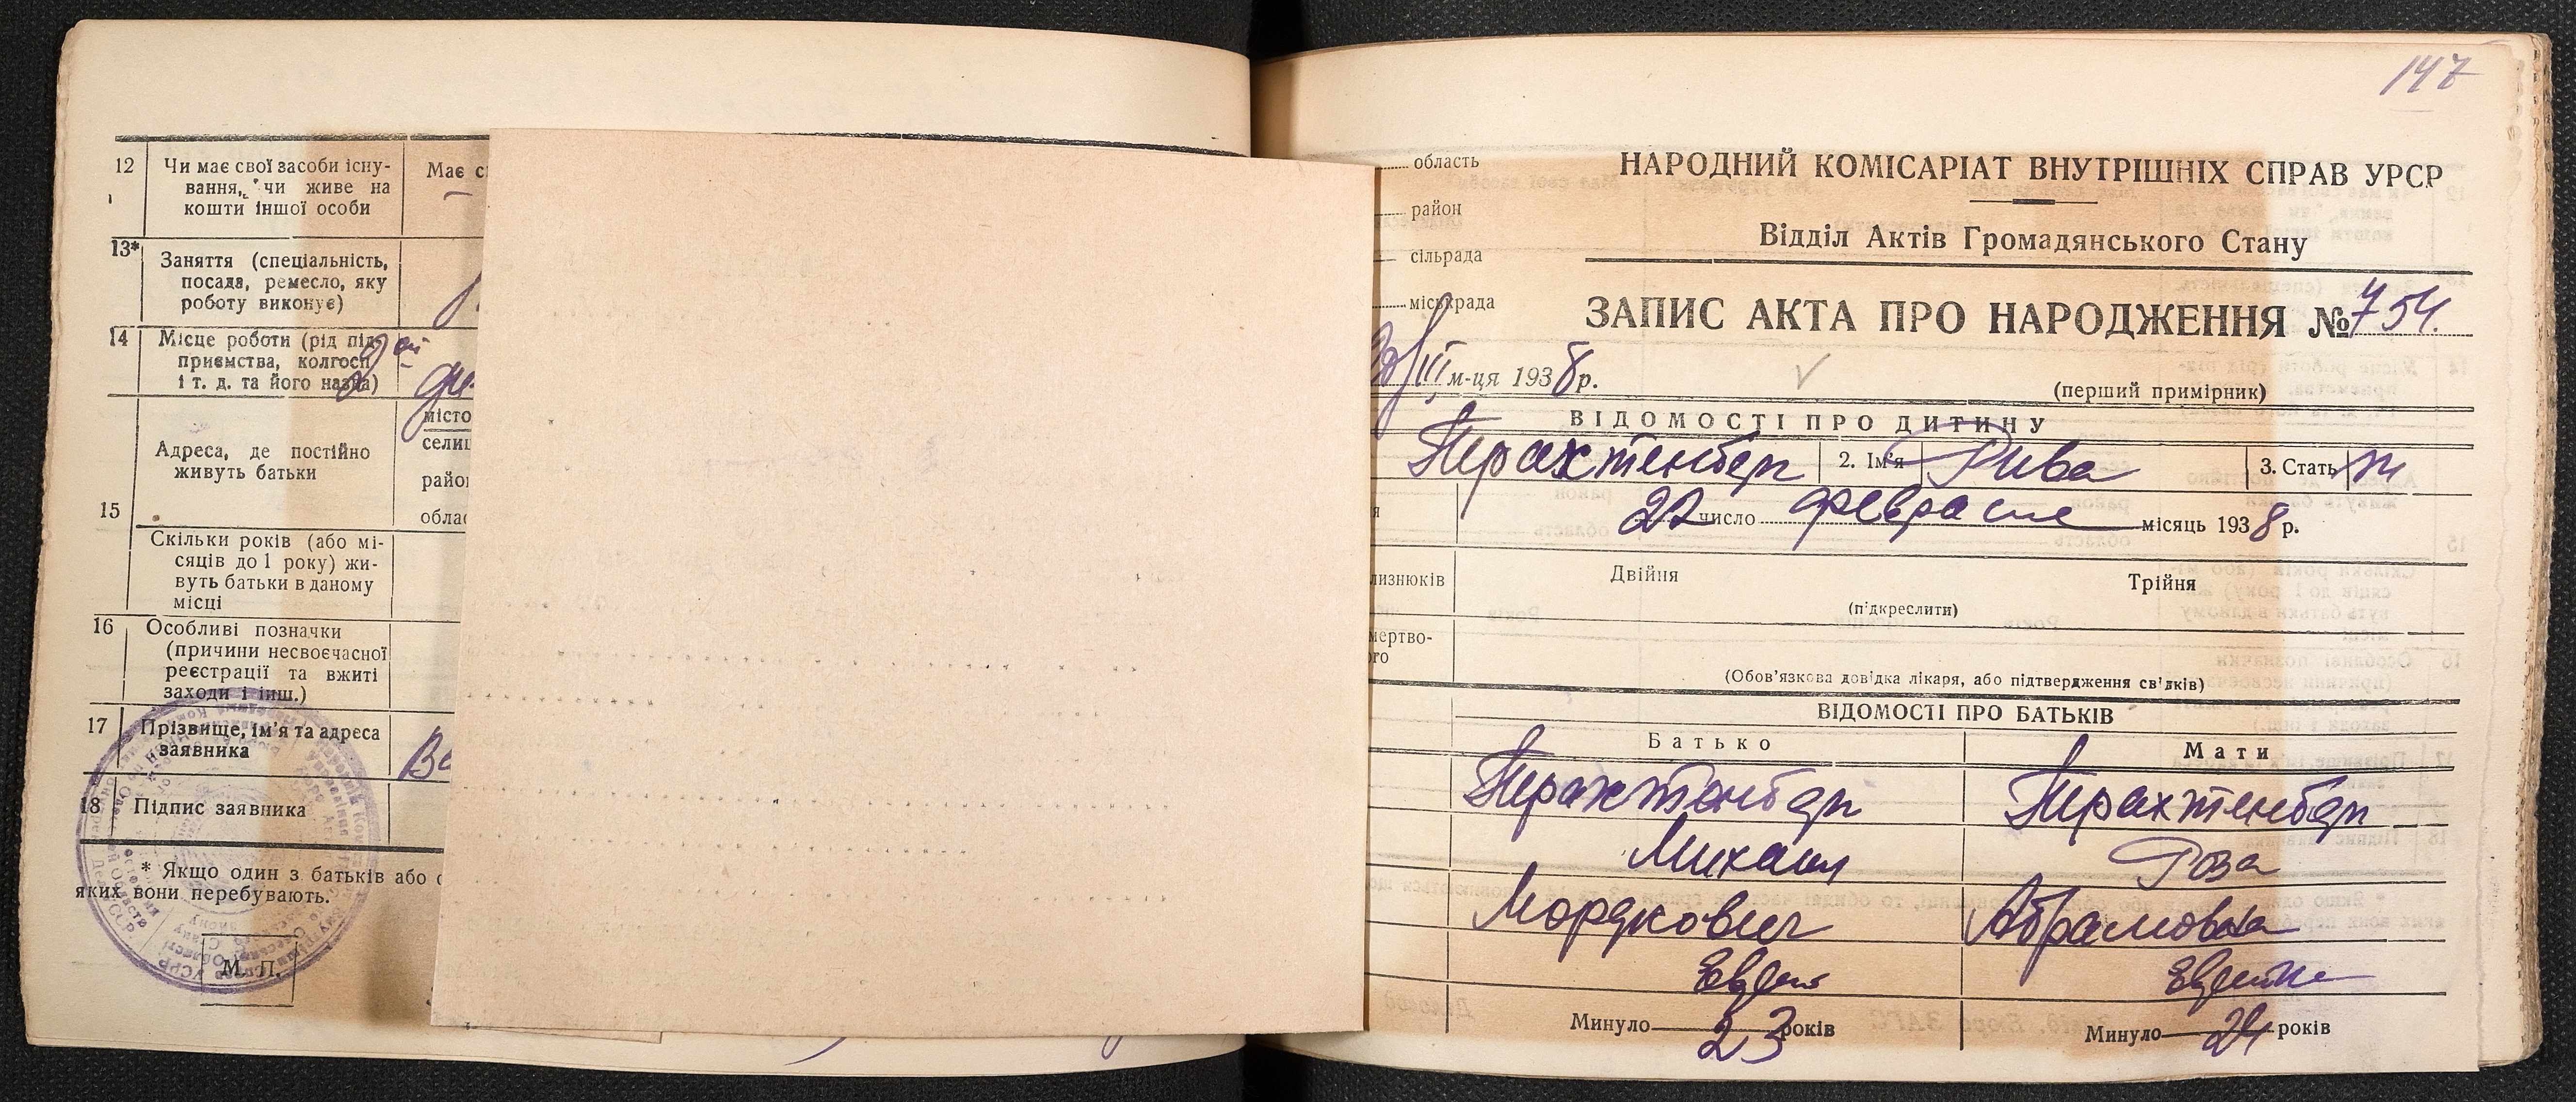 12
Чи має свої засоби існу-
вання, чи живе на
кошти іншої особи
Має
13*
Заняття (спеціальність,
посада, ремесло, яку
роботу виконує)
14
Місце роботи (рід під-
приємства, колгосп
і т. д. та його назва)
місто
селищ
15
Адреса, де постійно
живуть батьки
район
облас
Скільки років (або мі-
сяців до 1 року) жи-
вуть батьки в даному
місці
16
Особливі позначки
(причини несвоєчасної
реєстрації та вжиті
заходи і інш.)
17
Прізвище, ім'я та адреса
заявника
18
Підпис заявника
* Якщо один з батьків або
яких вони перебувають.
М. П.
147
область
район
сільрада
міськрада
НАРОДНИЙ КОМІСАРІАТ ВНУТРІШНІХ СПРАВ УРСР
Відділ Актів Громадянського Стану
ЗАПИС АКТА ПРО НАРОДЖЕННЯ № 754.
III м-ця 1938 р.
(перший примірник)
ВІДОМОСТІ ПРО ДИТИНУ
Трахтенберг 2. Ім'я Рива 3. Стать ж
22 число февраля місяць 1938 р.
лизнюків Двійня Трійня
(підкреслити)
мертво-
ого
(Обов'язкова довідка лікаря, або підтвердження свідків)
ВІДОМОСТІ ПРО БАТЬКІВ
Батько Мати
Трахтенберг Трахтенберг
Михаил Роза
Мордкович Абрамовна
Еврей Еврейка
Минуло 23 років Минуло 24 років